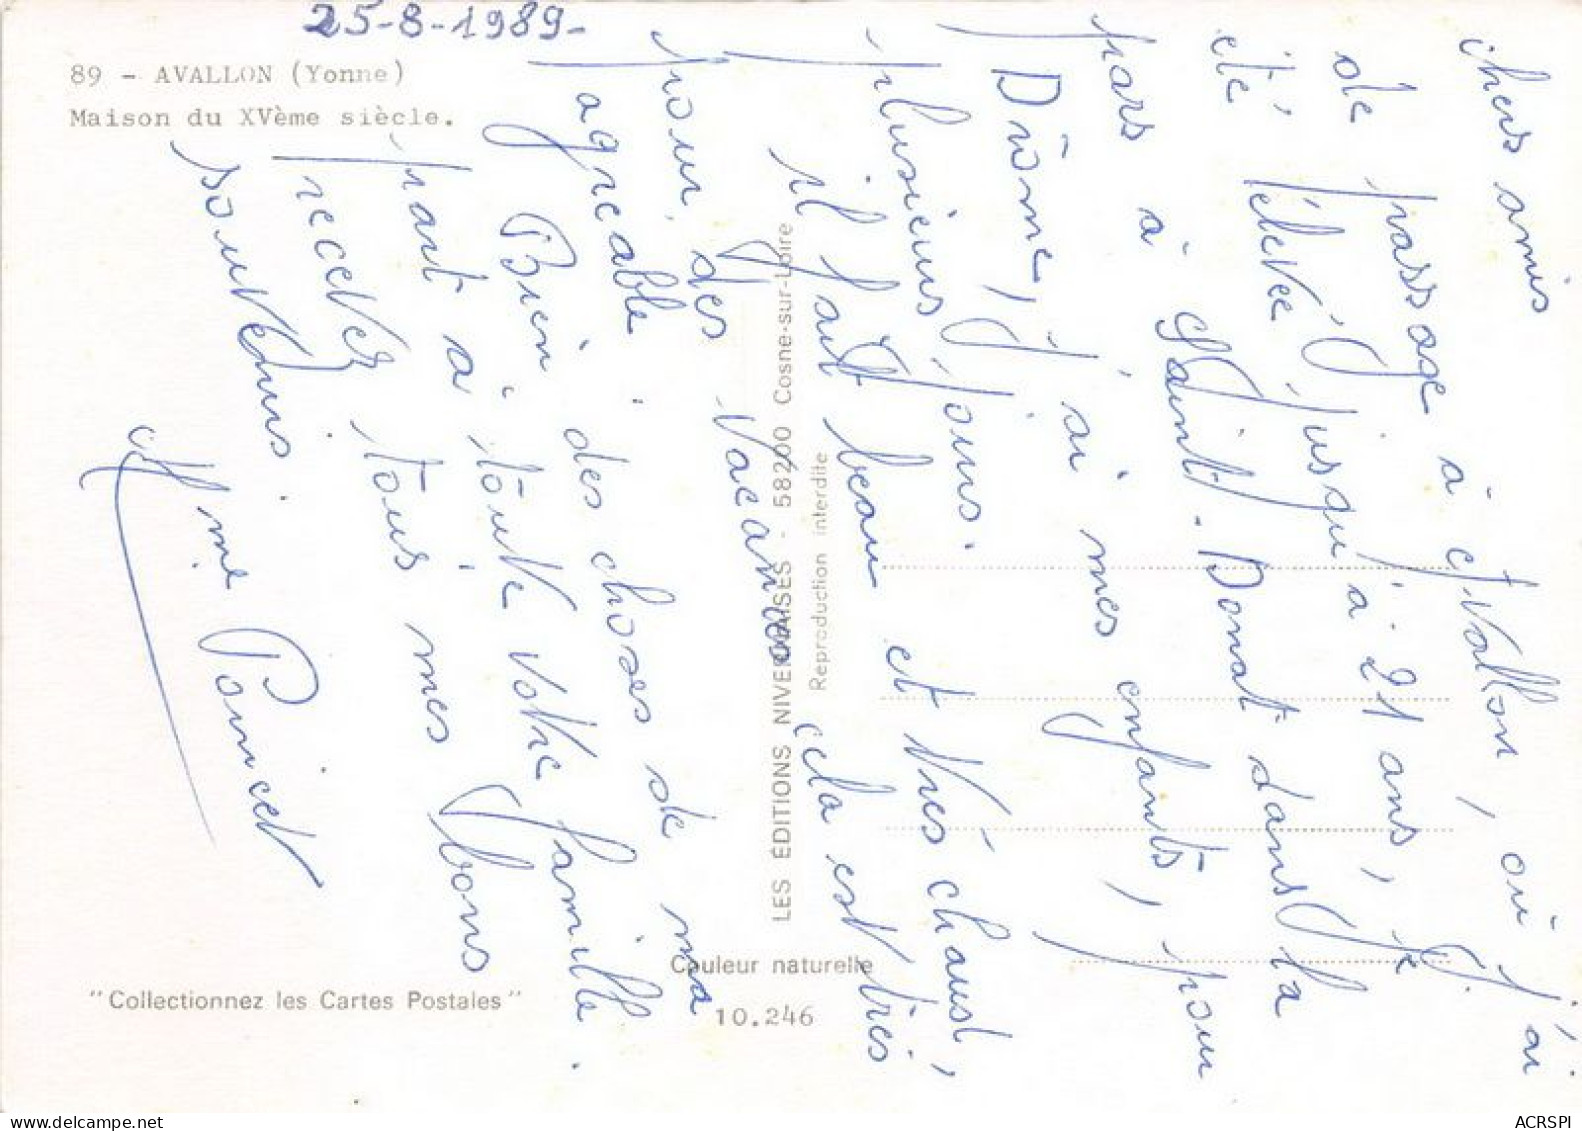 25-8-1989-
89 - AVALLON (Yonne)
Maison du XVème siècle.
chers amis
de passage à Avallon, où j'ai
été élevée jusqu'à 21 ans, je
pars à Saint-Donat dans la
Drôme, j'ai mes enfants, pour
plusieurs jours.
il fait beau et très chaud,
pour des vacances cela est très
agréable.
Bien des choses de ma
part à toute votre famille.
recevez tous mes bons
souvenirs.
Mme Poncet
LES ÉDITIONS NIVERNAISES - 58200 Cosne-sur-Loire
Reproduction interdite
Couleur naturelle
10.246
"Collectionnez les Cartes Postales"
ACRSPI